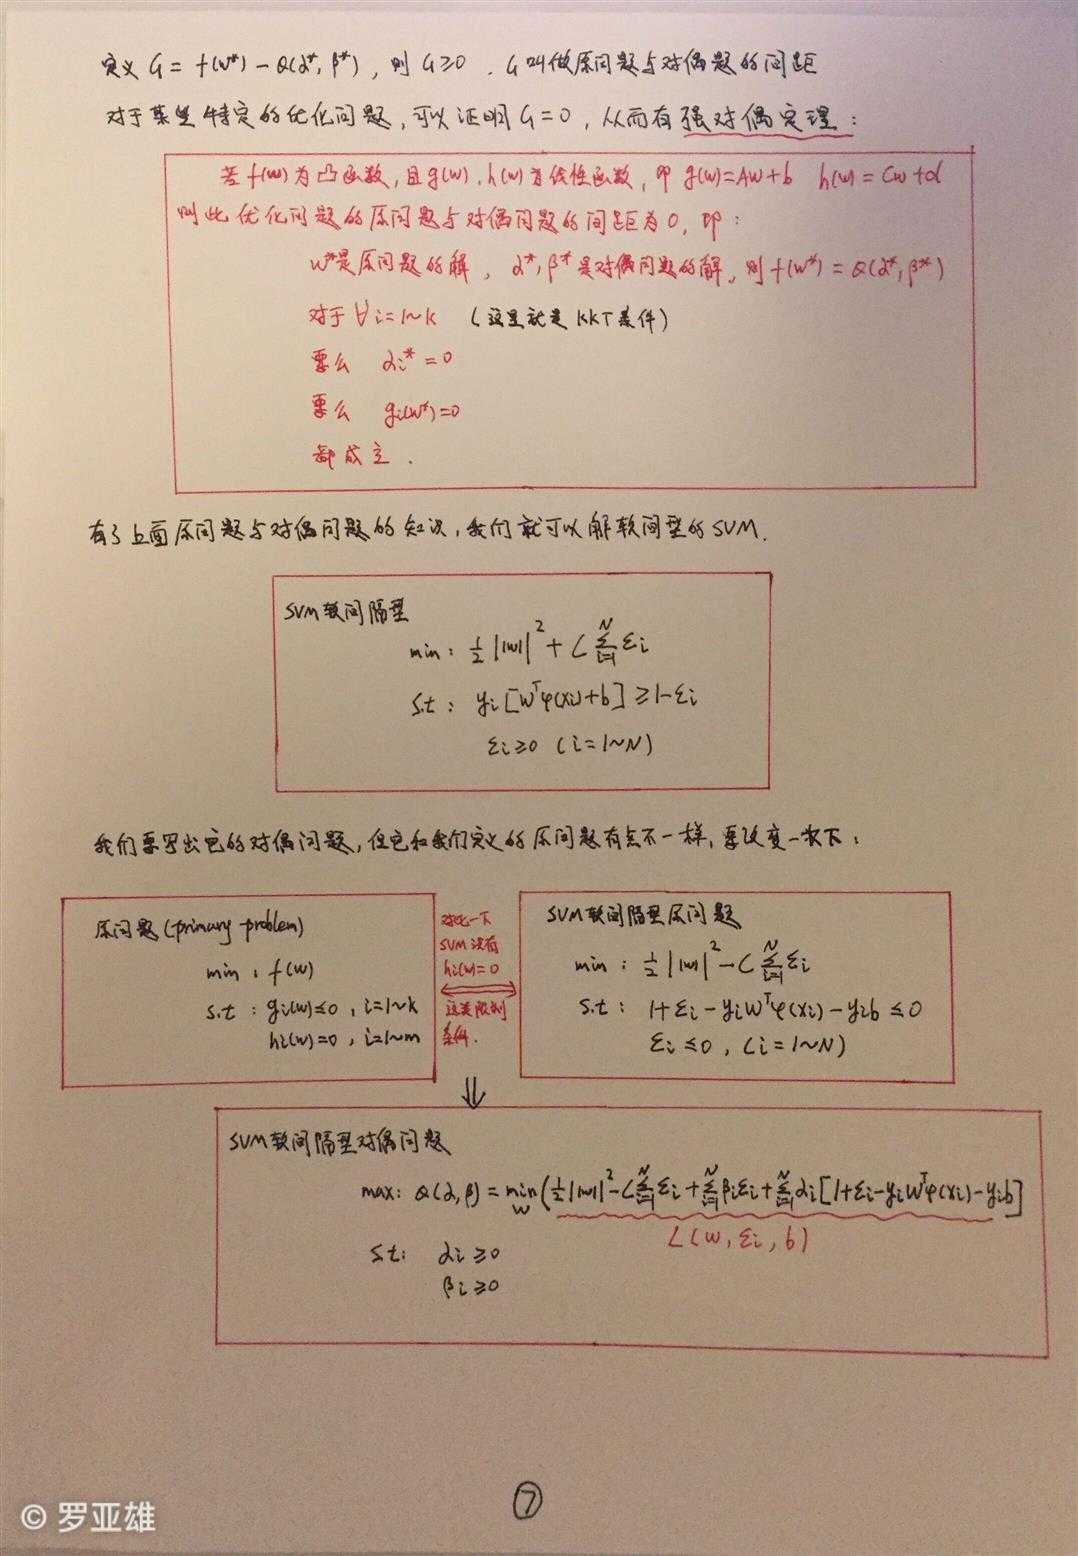 定义 G = f(w*) - Θ(α*, β*), 则 G≥0. G叫做原问题与对偶题的间距
对于某些特定的优化问题, 可以证明 G=0, 从而有强对偶定理:
若 f(w) 为凸函数, 且 g(w), h(w) 为线性函数, 即 g(w)=Aw+b h(w)=Cw+d
则此优化问题的原问题与对偶问题的间距为0, 即:
w*是原问题的解, α*, β*是对偶问题的解, 则 f(w*) = Θ(α*, β*)
对于 ∀i=1~k (这里就是KKT条件)
要么 αi* = 0
要么 gi(w*)=0
都成立.
有了上面原问题与对偶问题的知识, 我们就可以解软间型的SVM.
SVM软间隔型
min: ½|w|² + C∑_{i=1}^{N} εi
s.t: yi[wᵀφ(xi)+b]≥1-εi
εi≥0 (i=1~N)
我们要写出它的对偶问题, 但它和我们定义的原问题有点不一样, 要改变一次下:
原问题 (primary problem)
min: f(w)
s.t: gi(w)≤0, i=1~k
hi(w)=0, i=1~m
对比一下
SVM没有
hi(w)=0
这类限制
条件.
SVM软间隔型原问题
min: ½|w|² - C∑_{i=1}^{N} εi
s.t: 1+εi - yiwᵀφ(xi) - yib ≤0
εi≤0, (i=1~N)
SVM软间隔型对偶问题
max: Θ(α,β) = min_w (½|w|² - C∑_{i=1}^{N} εi + ∑_{i=1}^{N} βiεi + ∑_{i=1}^{N} αi[1+εi-yiwᵀφ(xi)-yib]
L(w, εi, b)
s.t: αi≥0
βi≥0
⑦
© 罗亚雄